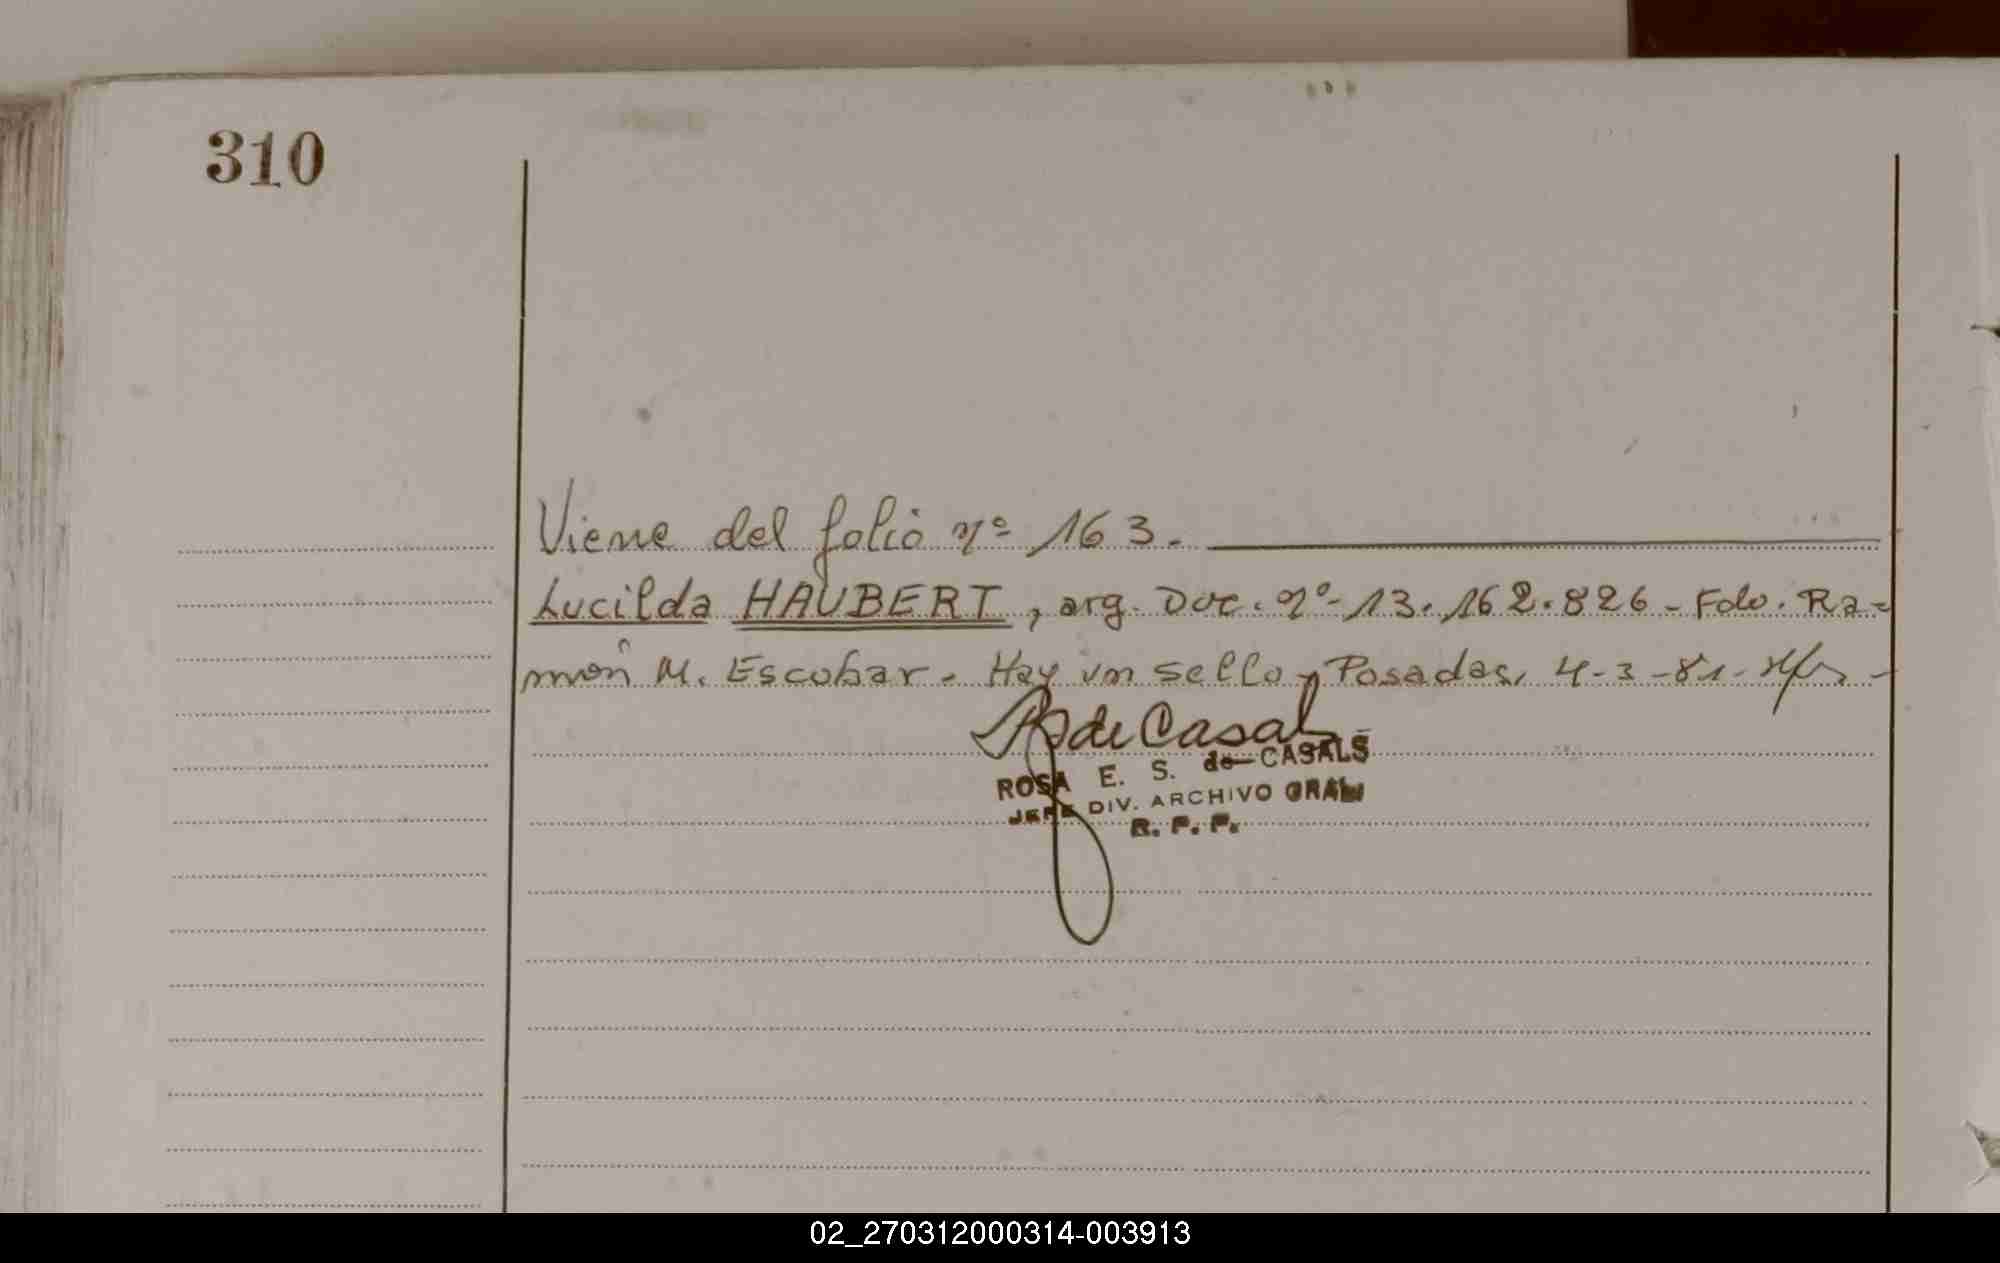 310
Viene del folio nº 163.
Lucilda HAUBERT, arg. Doc. nº 13.162.826 - Fdo. Ra=
món M. Escobar. Hay un sello, Posadas, 4-3-81-
R de Casals
ROSA E. S. de CASALS
JEFE DIV. ARCHIVO GRAL
R. P. P.
02_270312000314-003913